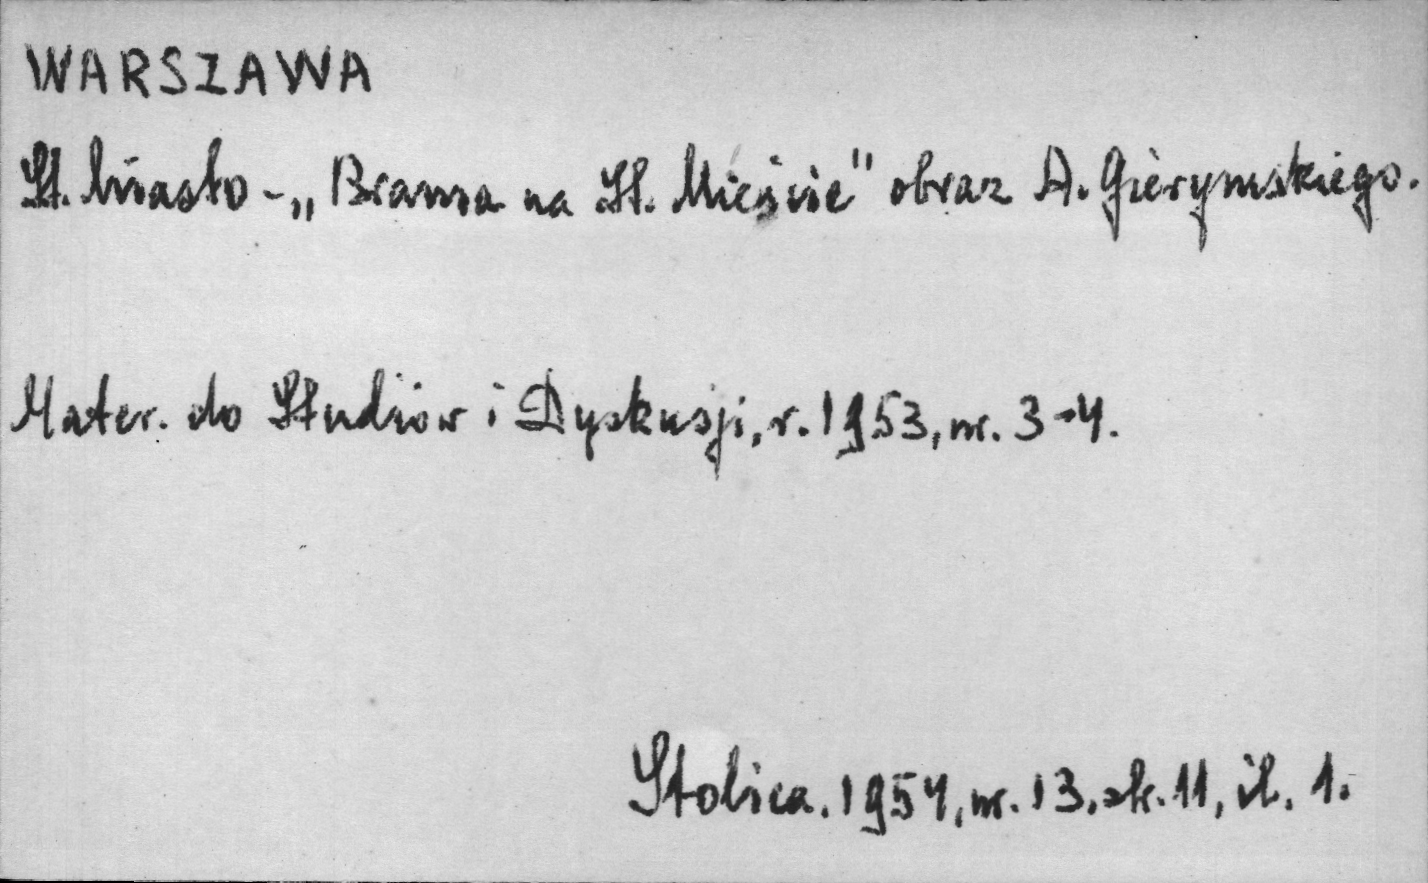 WARSZAWA
St. Miasto - „Brama na St. Mieście" obraz A. Gierymskiego.
Mater. do Studiów i Dyskusji, r. 1953, nr. 3-4.
Stolica. 1954, nr. 13. str. 11, il. 1.